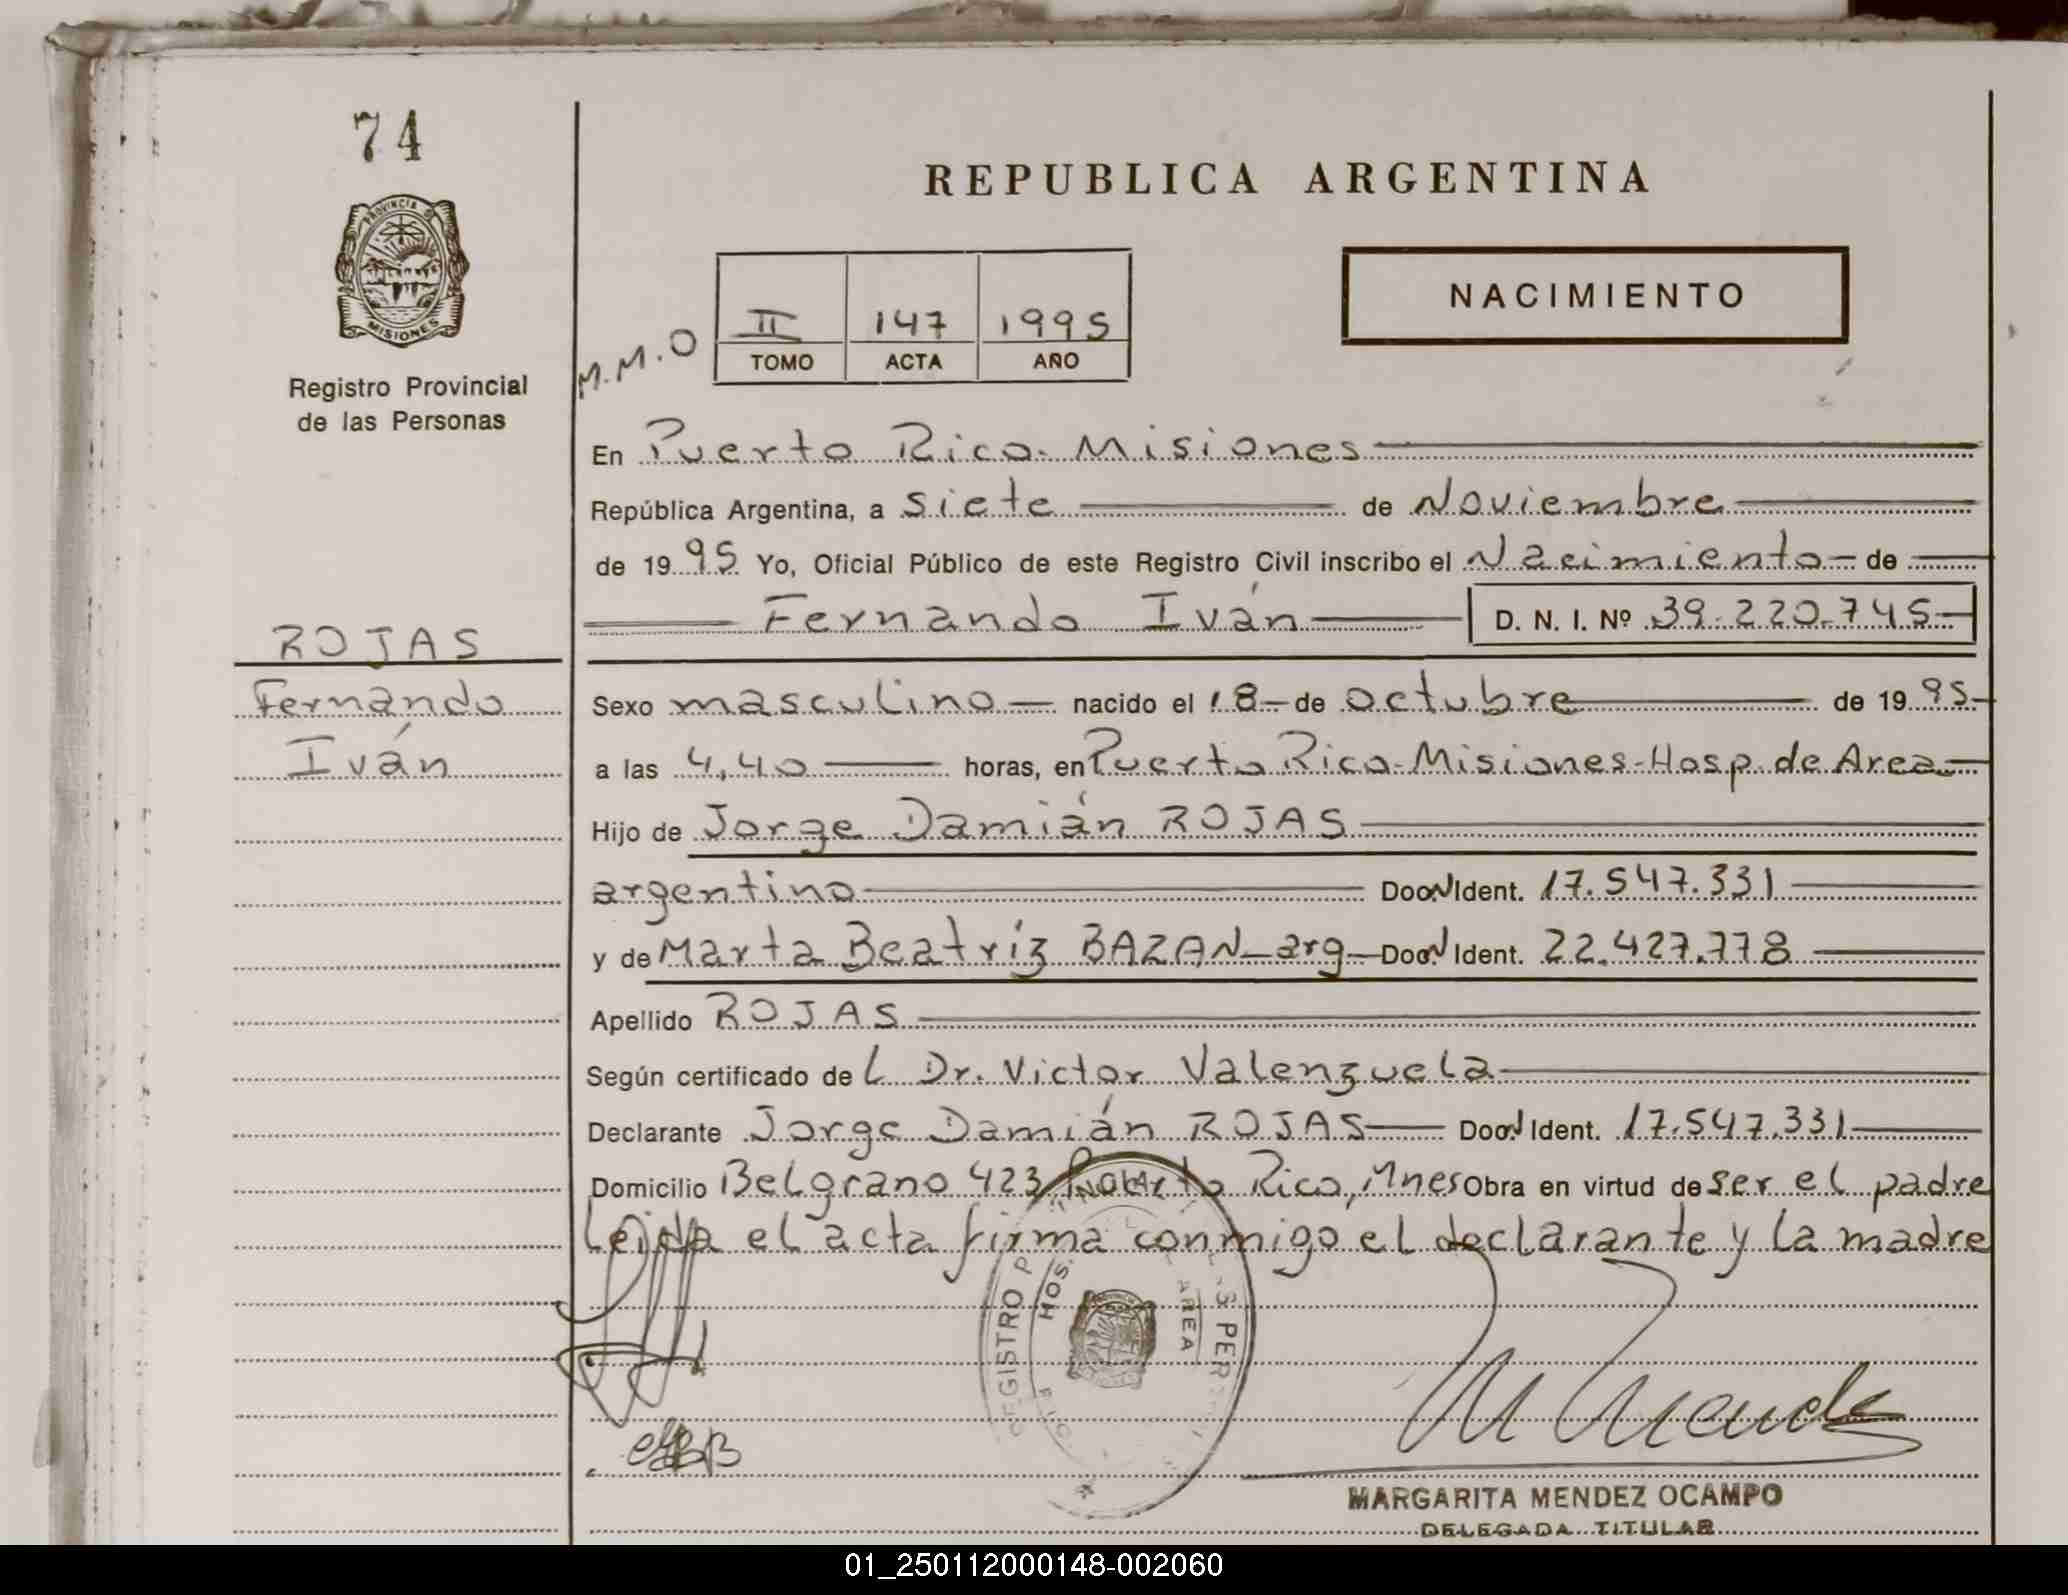 74
PROVINCIA DE
MISIONES
Registro Provincial
de las Personas
REPUBLICA ARGENTINA
NACIMIENTO
M.M.O
II 147 1995
TOMO ACTA AÑO
En Puerto Rico - Misiones
República Argentina, a siete de Noviembre
de 1995 Yo, Oficial Público de este Registro Civil inscribo el Nacimiento de
Fernando Iván D. N. I. Nº 39.220.745
ROJAS
Fernando
Iván
Sexo masculino nacido el 18 de octubre de 1995
a las 4,40 horas, en Puerto Rico-Misiones-Hosp. de Area
Hijo de Jorge Damián ROJAS
argentino Ident. 17.547.331
y de Marta Beatríz BAZAN - arg Ident. 22.427.778
Apellido ROJAS
Según certificado del Dr. Victor Valenzuela
Declarante Jorge Damián ROJAS Ident. 17.547.331
Domicilio Belgrano 423 Puerto Rico, Mnes Obra en virtud de ser el padre
Leida el acta firma conmigo el declarante y la madre
REGISTRO
HOS.
AREA
M Mendez
MARGARITA MENDEZ OCAMPO
DELEGADA TITULAR
01_250112000148-002060